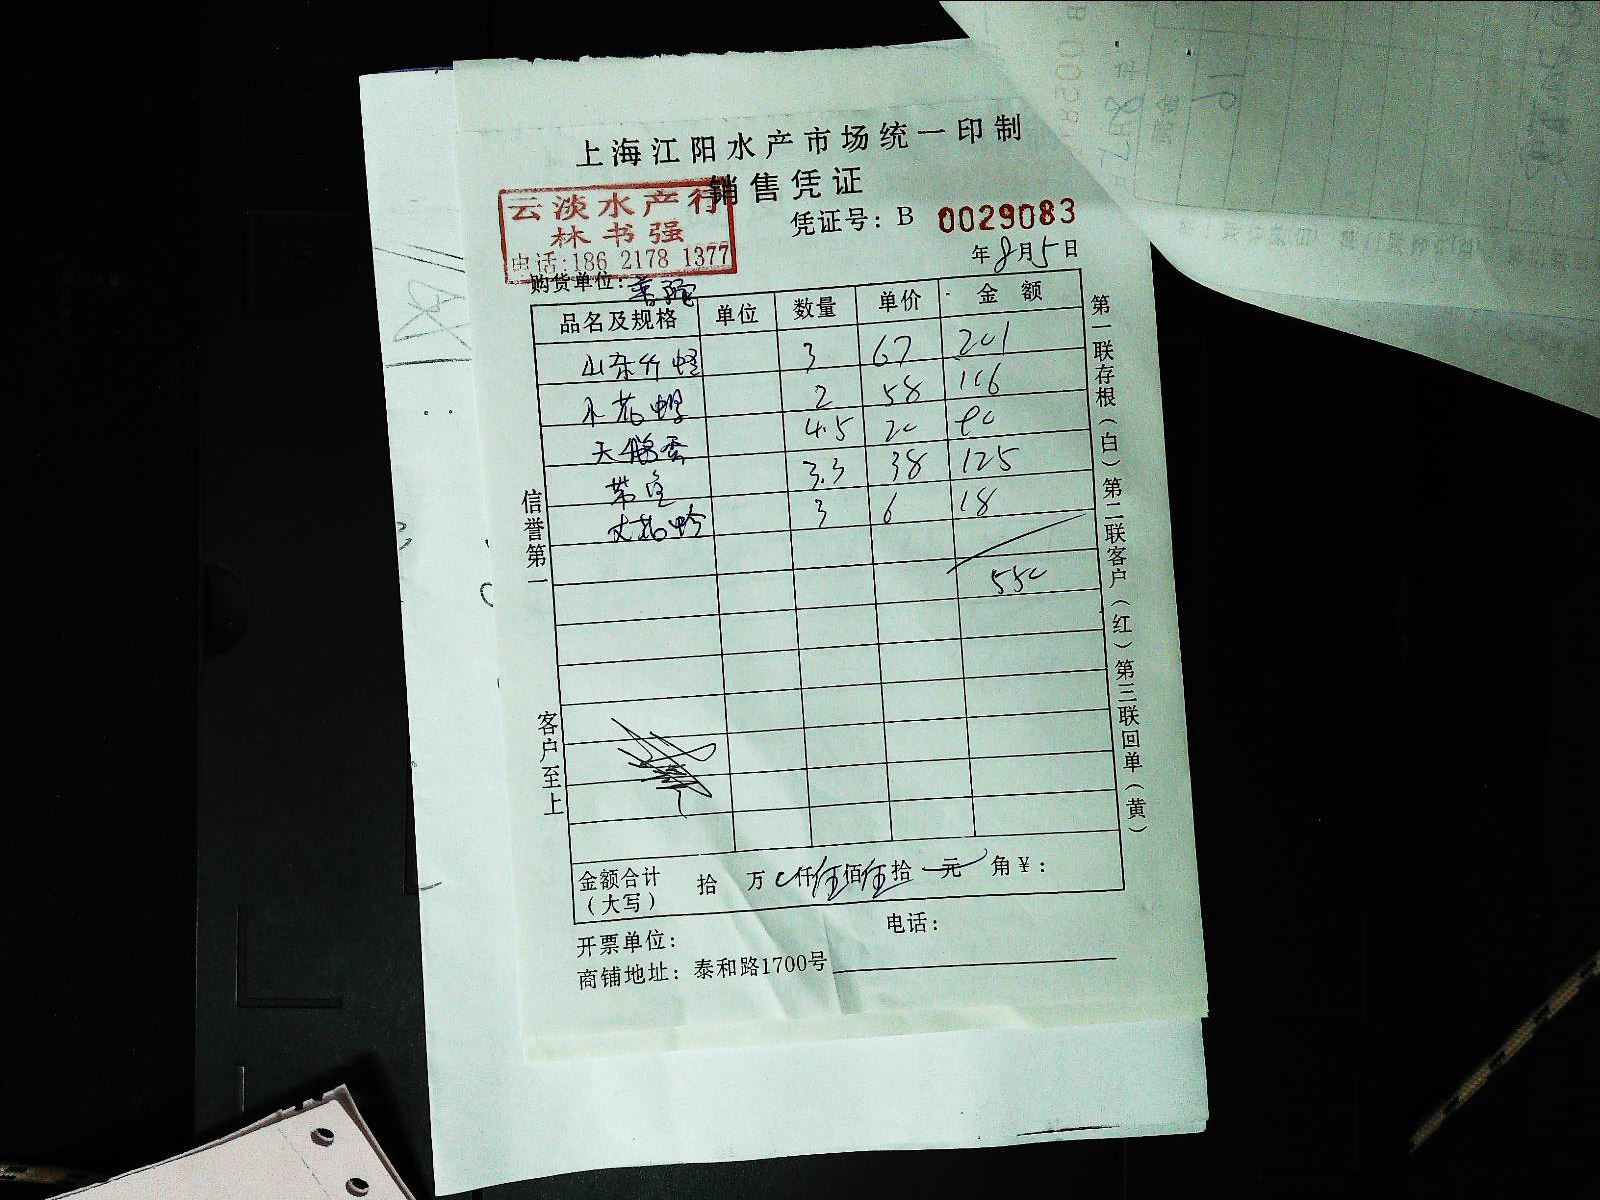 上海江阳水产市场统一印制
销售凭证
云淡水产行
林书强
电话:186 2178 1377
凭证号：B 0029083
年8月5日
购货单位：普陀
品名及规格 单位 数量 单价 金额
山东竹蛏 3 67 201
小花螺 2 58 116
天鹅蛋 4.5 20 90
带 3.3 38 125
大花蛤 3 6 18
550
金额合计（大写） 拾 万 0仟伍佰伍拾 元 角¥：
开票单位： 电话：
商铺地址：泰和路1700号
信誉第一 客户至上
第一联存根（白）第二联客户（红）第三联回单（黄）